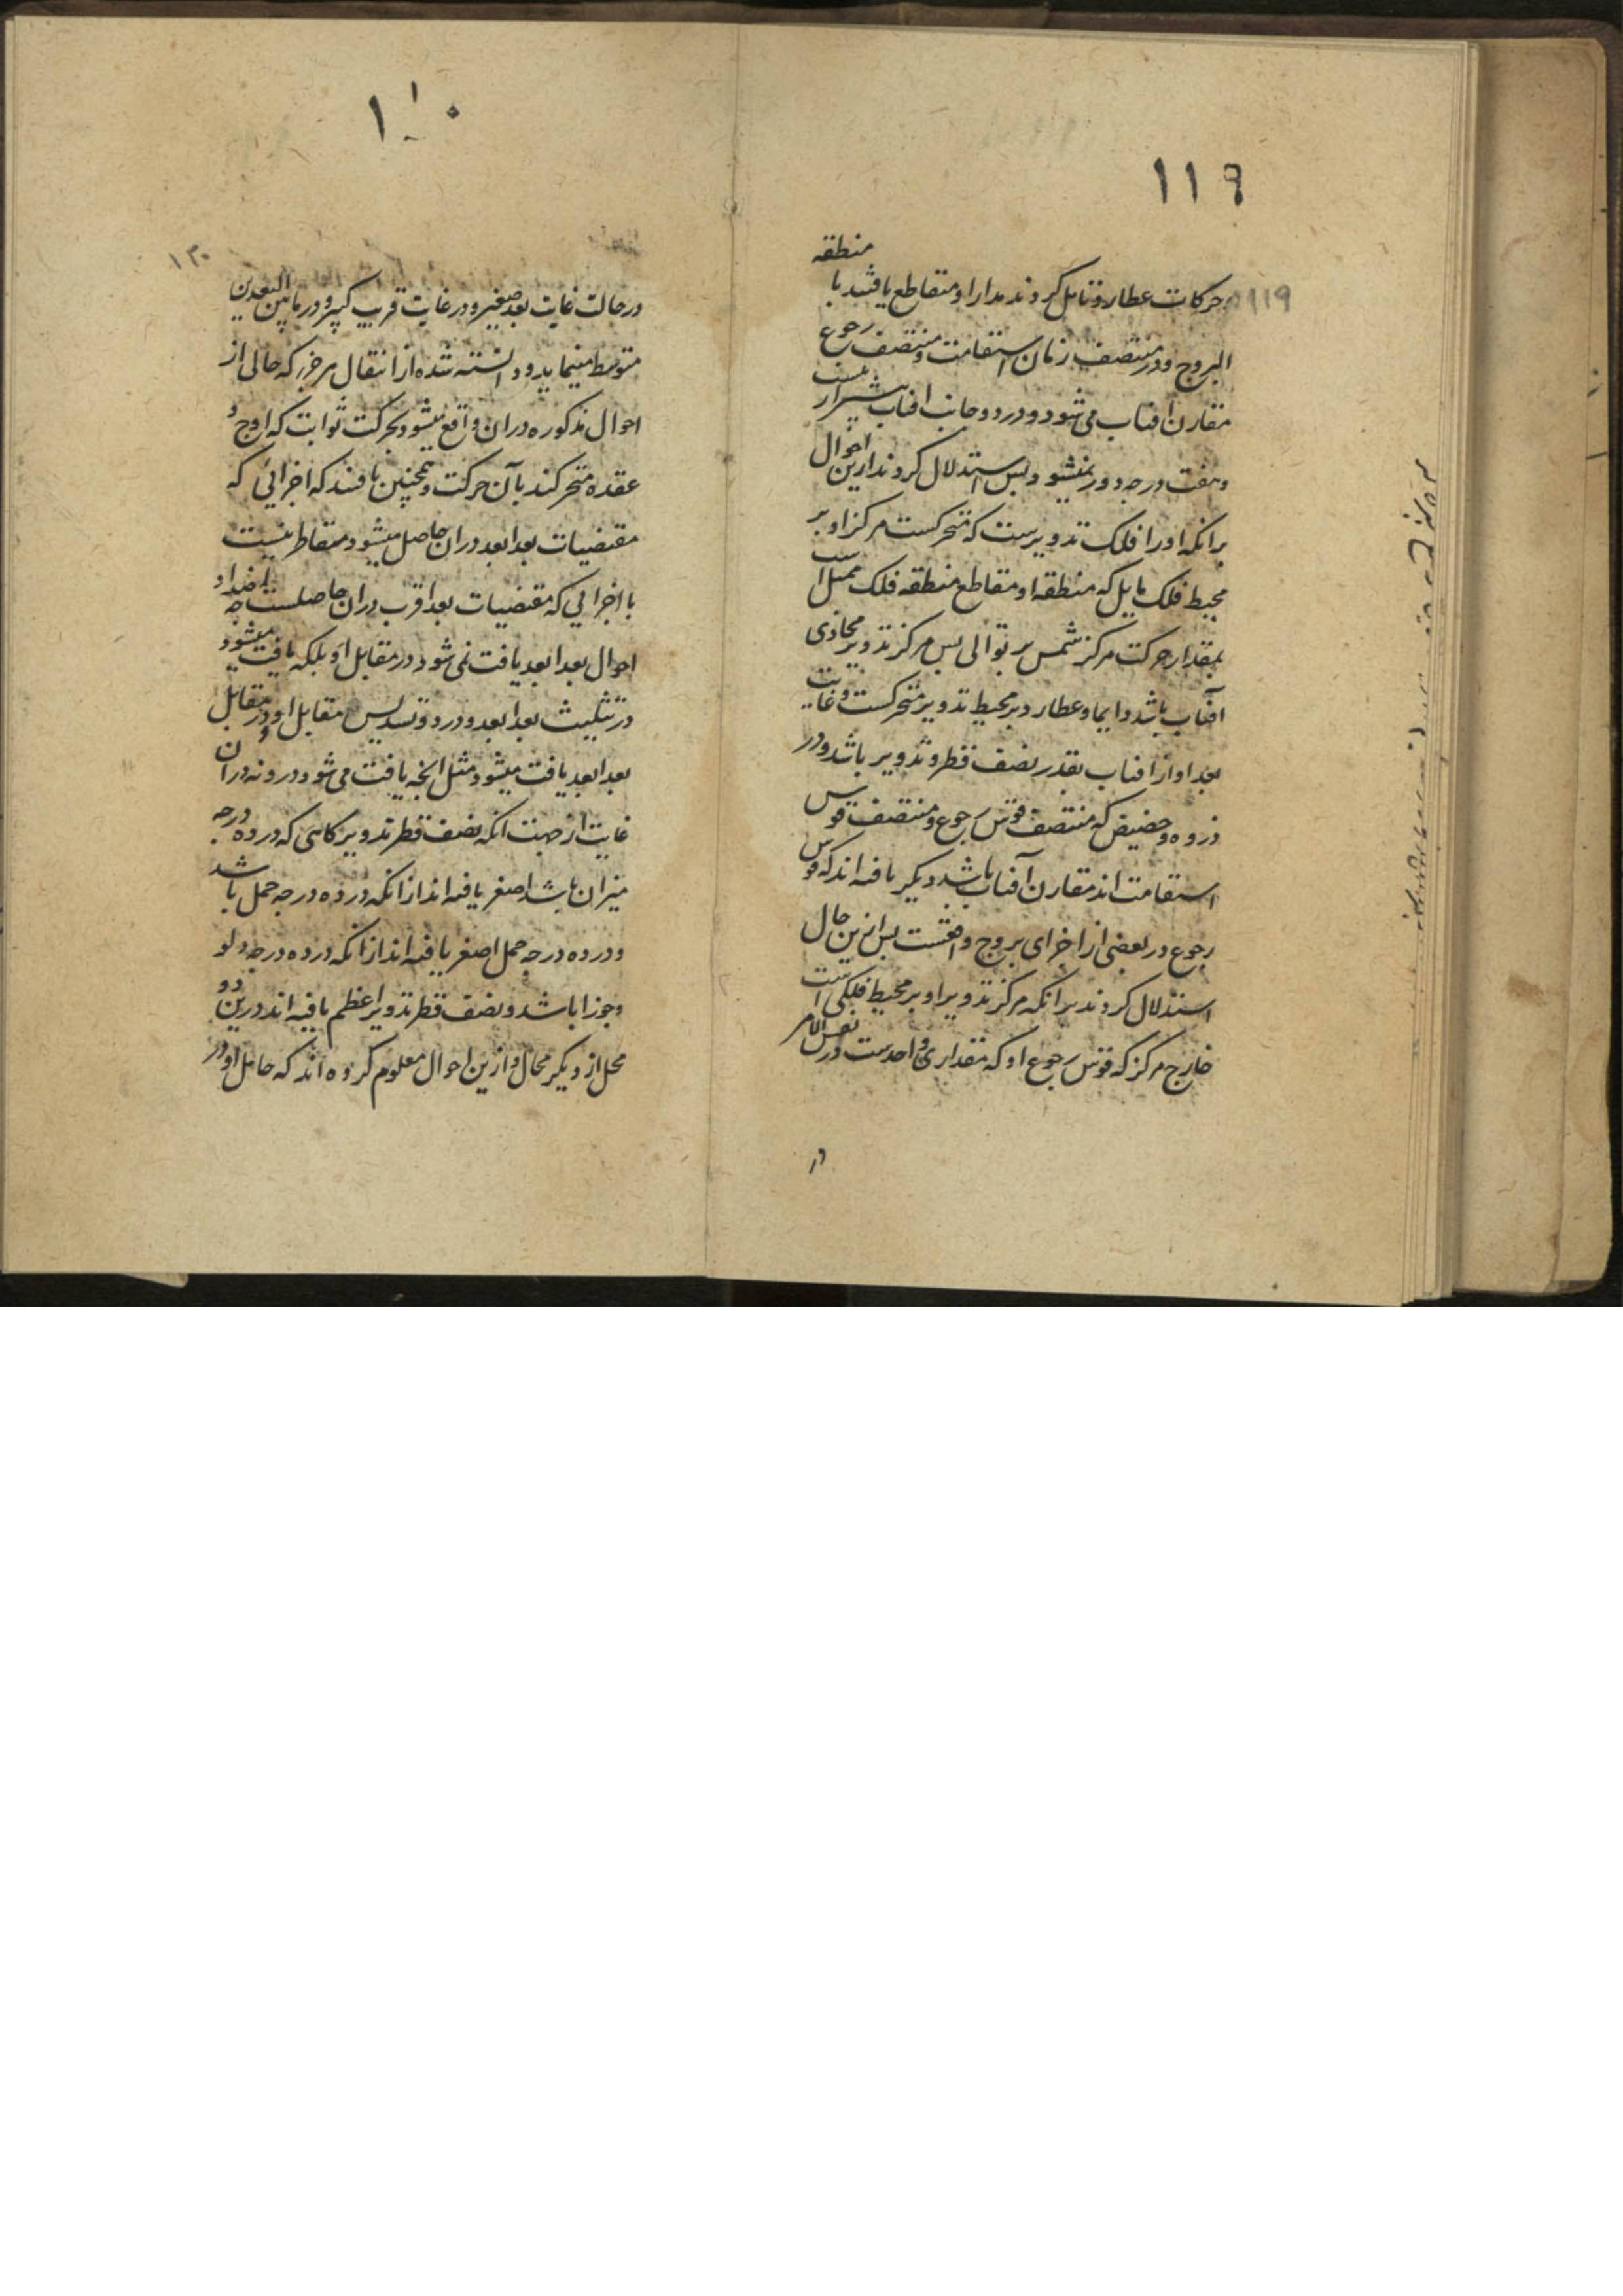 ١١٩
١١٩
حرکات عطارد تامل کردند مدار او متقاطع یافتند با منطقه
البروج و در منتصف زمان استقامت و منتصف رجوع
مقارن افتاب می شود و در دو جانب افتاب بیشتر از بیست
و هفت درجه دور نمیشود و بس استدلال کردند ازین احوال
برانکه او را فلک تدویرست که متحرکست مرکز او بر
محیط فلک مایل که منطقه او مقاطع منطقه فلک ممثل است
بمقدار حرکت مرکز شمس بر توالی بس مرکز تدویر محاذی
آفتاب باشد دایما و عطارد بر محیط تدویر متحرکست و غایت
بعد او از افتاب بقدر نصف قطر تدویر باشد و در
ذروه و حضیض که منتصف قوس رجوع و منتصف قوس
استقامت اند مقارن آفتاب باشد دیکر یافته اند که قوس
رجوع در بعضی از اجزای بروج واقعست بس ازین حال
استدلال کردند برانکه مرکز تدویر او بر محیط فلکی است
خارج مرکز که قوس رجوع او که مقداری واحدست در نفس الامر
در
١٢٠
در حالت غایت بعد صغیر و در غایت قرب کبیر و در ما بین البعدین
متوسط مینماید و دانسته شده از انتقال هر جزء که حالی از
احوال مذکوره دران واقع میشود بحرکت ثوابت که اوج و
عقده متحرکند بآن حرکت و همچنین یافتند که اجزائی که
مقتضیات بعد ابعد دران حاصل میشود متقاطر نیست
با اجزایی که مقتضیات بعد اقرب دران حاصلست چه اضداد
احوال بعد ابعد یافت نمی شود در مقابل او بلکه یافت میشود
در تثلیث بعد ابعد و در دو تسدیس مقابل او و در مقابل
بعد ابعد یافت میشود مثل انچه یافت می شود درو نه دران
غایت از جهت انکه نصف قطر تدویر کاهی که در ده درجه
میزان باشد اصغر یافته اند از انکه در ده درجه حمل باشد
و در ده درجه حمل اصغر یافته اند از انکه در ده درجه دلو
و جوزا باشد و نصف قطر تدویر اعظم یافته اند درین دو
محل از دیکر محال و ازین احوال معلوم کرده اند که حامل او در